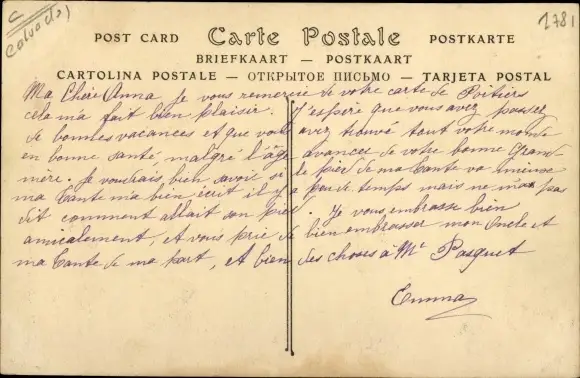 C
(Calvados)
1781
POST CARD Carte Postale POSTKARTE
BRIEFKAART — POSTKAART
CARTOLINA POSTALE — ОТКРЫТОЕ ПИСЬМО — TARJETA POSTAL
Ma Chère Anna je vous remercie de votre carte de Poitiers
cela ma fait bien plaisir. J'espère que vous avez passez
de bonnes vacances et que vous avez trouvé tout votre monde
en bonne santé, malgré l'âge avancée de votre bonne Grand
mère. Je voudrais bien savoir si le pied de ma Tante va mieux
ma Tante m'a bien écrit il y a peu de temps mais ne m'a pas
dit comment allait son pied Je vous embrasse bien
amicalement, et vous prie de bien embrasser mon Oncle et
ma Tante de ma part, et bien des choses à Mr Pasquet
Emma